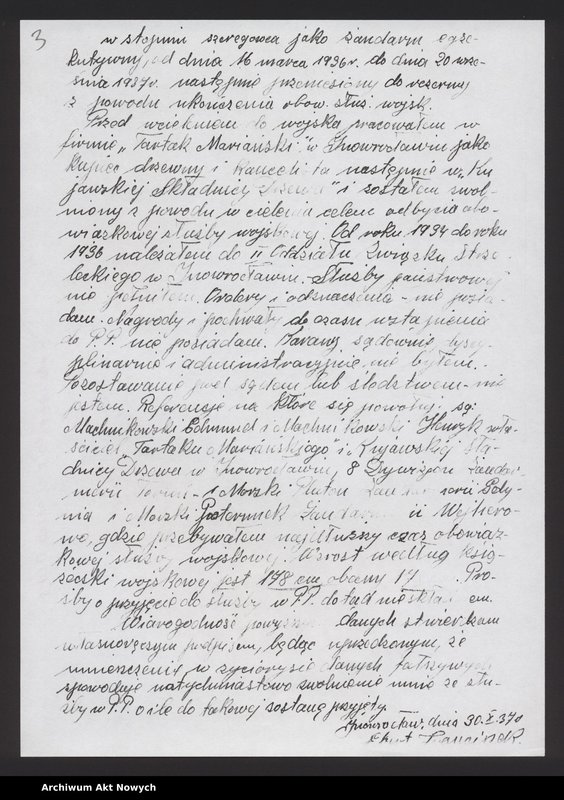 3
w stopniu szeregowca jako żandarm egze-
kutywny, od dnia 16 marca 1936r. do dnia 20 wrze-
śnia 1937r. następnie przeniesiony do rezerwy
z powodu ukończenia obow. służ. wojsk.
Przed wcieleniem do wojska pracowałem w
firmie „Tartak Mariański" w Inowrocławiu jako
kupiec drzewny i kancelista następnie w „Ku
jawskiej Składnicy Drzewa" i zostałem zwol-
niony z powodu wcielenia celem odbycia obo-
wiązkowej służby wojskowej. Od roku 1934 do roku
1936 należałem do II Oddziału Związku Strze-
leckiego w Inowrocławiu. Służby państwowej
nie pełniłem. Ordery i odznaczenia - nie posia-
dam. Nagrody i pochwały do czasu wstąpienia
do P.P. nie posiadam. Karany sądownie, dyscy-
plinarnie i administracyjnie nie byłem.
Pozostawanie pod sądem lub śledztwem - nie
jestem. Referencje na które się powołuję są:
Machnikowski Edmund i Machnikowski Henryk wła-
ściciel „Tartaku Mariańskiego" i „Kujawskiej Skła-
dnicy Drzewa w Inowrocławiu, 8 Dywizjon Żandar
merii Toruń - i Morski Pluton Żandarmerii Gdy-
nia i Morski Posterunek Żandarmerii Wejhero-
wo, gdzie przebywałem najdłuższy czas obowiąz-
kowej służby wojskowej. Wzrost według ksią-
żeczki wojskowej jest 178 cm, obecny 17 . Pro-
śby o przyjęcie do służby w P.P. dotąd nie składałem.
Wiarogodność powyższych danych stwierdzam
własnoręcznym podpisem, będąc uprzedzonym, że
umieszczenie w życiorysie danych fałszywych
spowoduje natychmiastowe zwolnienie mnie ze słu-
żby w P.P. o ile do takowej zostanę przyjęty.
Inowrocław, dnia 30.X.37r
Archiwum Akt Nowych